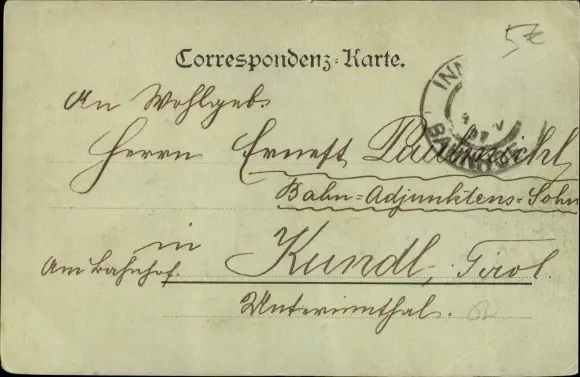 5€
Correspondenz-Karte.
INN
BAHNHOF
An Wohlgeb.
Herrn Ernest
Bahn-Adjunktens-Sohn
in
Am Bahnhof. Kundl, Tirol.
Unterinnthal.